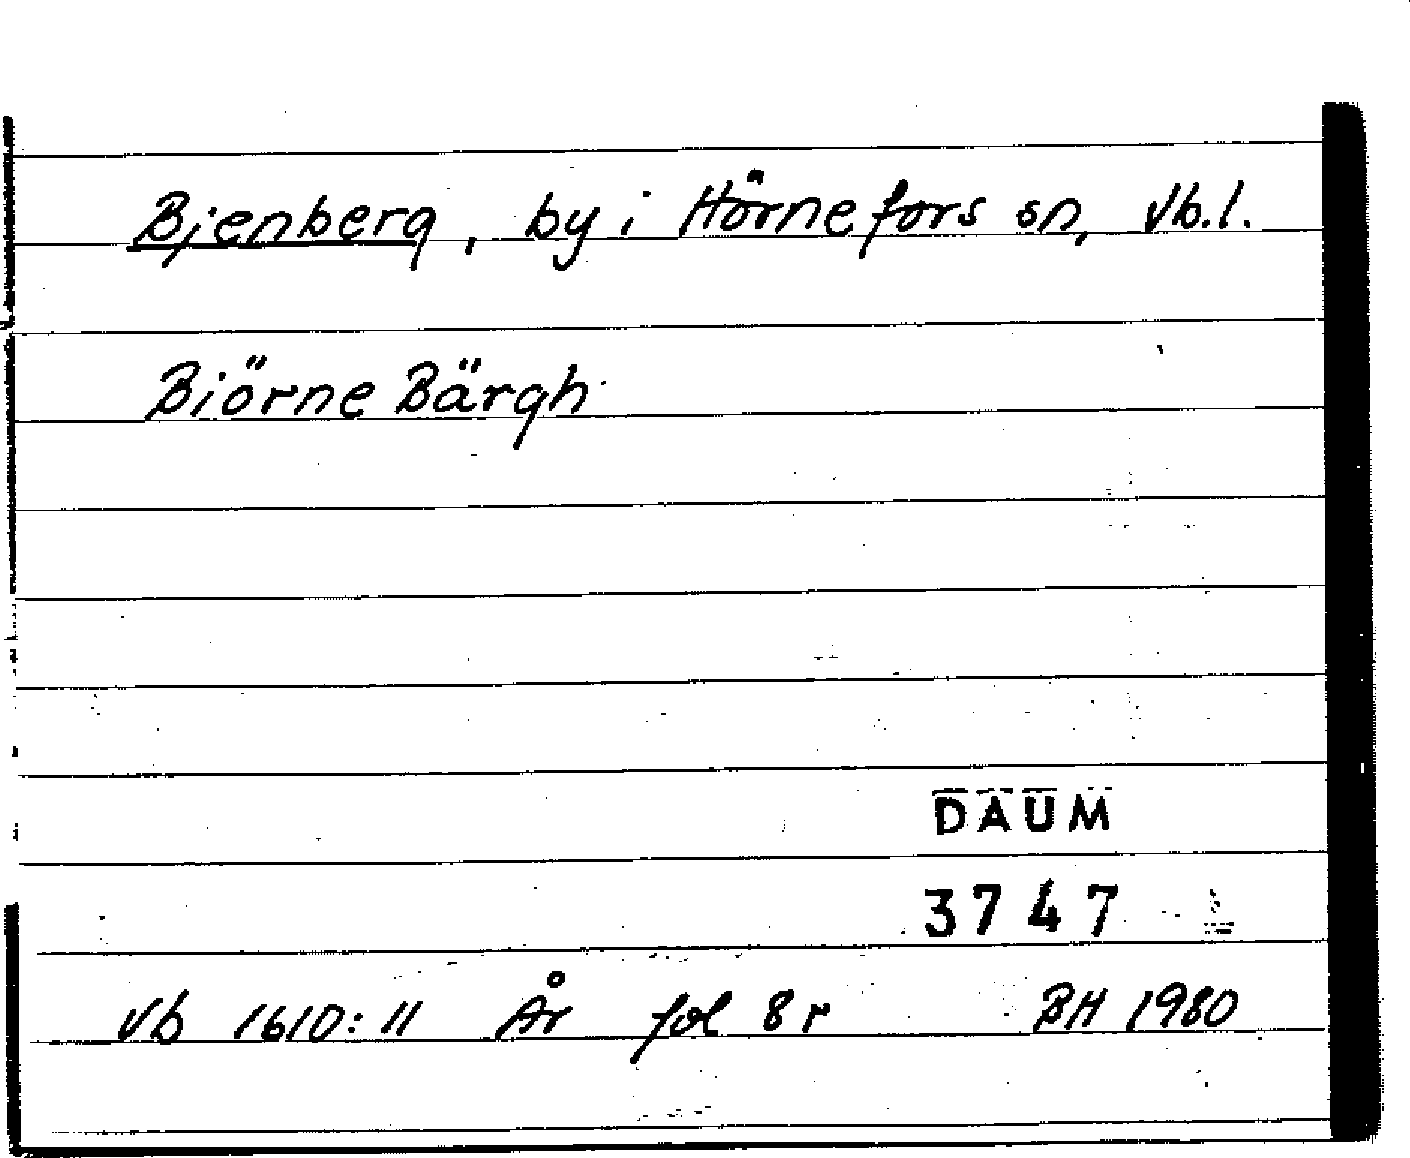 Bjenberg, by i Hörnefors sn, Vb.l.
Biörne Bärgh
DAUM
3747
Vb 1610:11 År fol 8r BH 1980